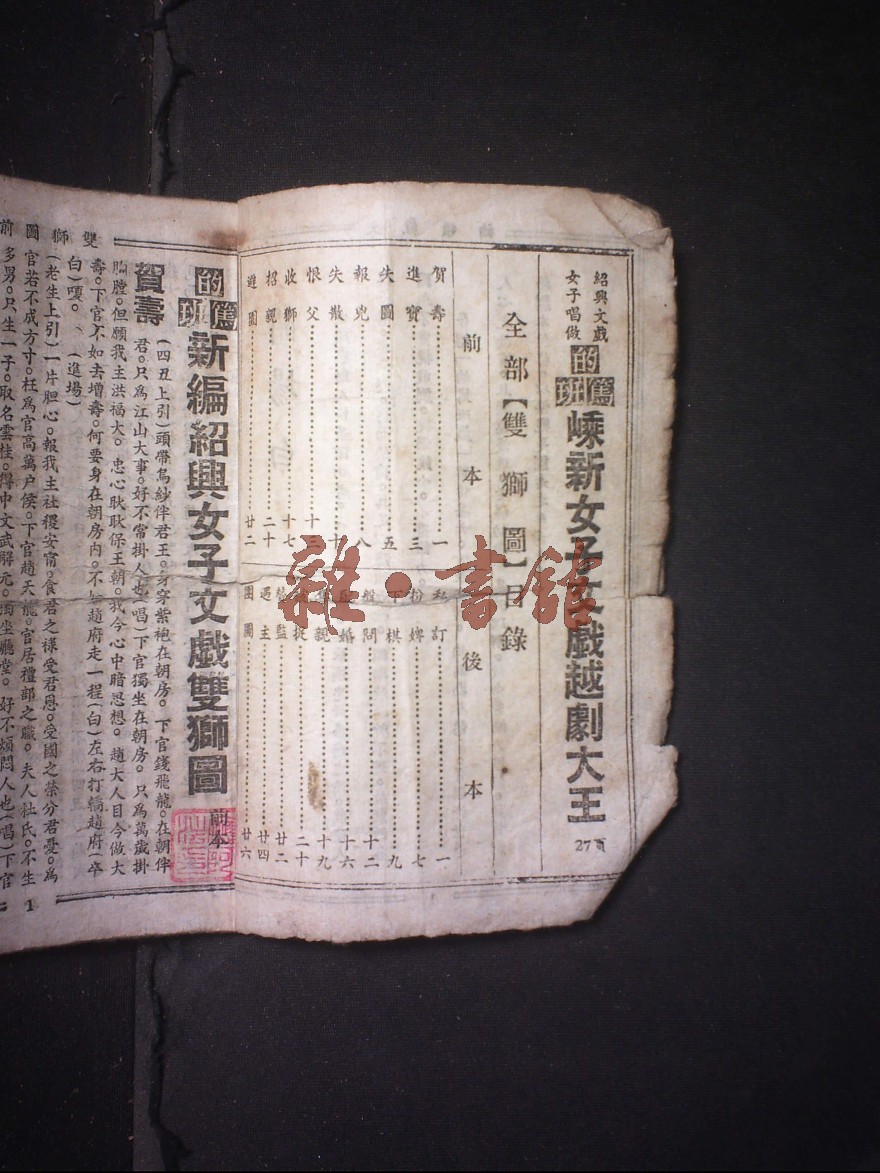 紹興文戲
女子唱做
的篤班
嵊新女子文戲越劇大王
27頁
全部【雙獅圖】目錄
前本
賀壽 一
進寶 三
失圖 五
報兇 八
失散 十
恨父 十三
收獅 十七
招親 二十
遊園 廿二
後本
私訂 一
扮婢 七
下棋 九
盤問 十二
婚 十六
親 十九
二十
監 廿二
遇主 廿四
團圓 廿六
雜·書館
的篤班
新編紹興女子文戲雙獅圖
前本
賀壽
(四丑上引)頭帶烏紗伴君王。身穿紫袍在朝房。下官錢飛龍。在朝伴
君。只為江山大事。好不常掛人也(唱)下官獨坐在朝房。只為萬歲掛
胸膛。但願我主洪福大。忠心耿耿保王朝。我今心中暗思想。趙大人目今做大
壽。下官不如去增壽。何要身在朝房內。不趙府走一程(白)左右打轎趙府(卒
白)嗄。(進場)
(老生上引)一片胆心。報我主社稷安甯。食君之祿受君恩。受國之榮分君憂。為
官若不成方寸。枉為官高萬户侯。下官趙天龍。官居禮部之職。夫人杜氏。不生
多男。只生一子。取名雲桂。得中文武解元。獨坐廳堂。好不煩悶人也(唱)下官
雙獅圖前
1